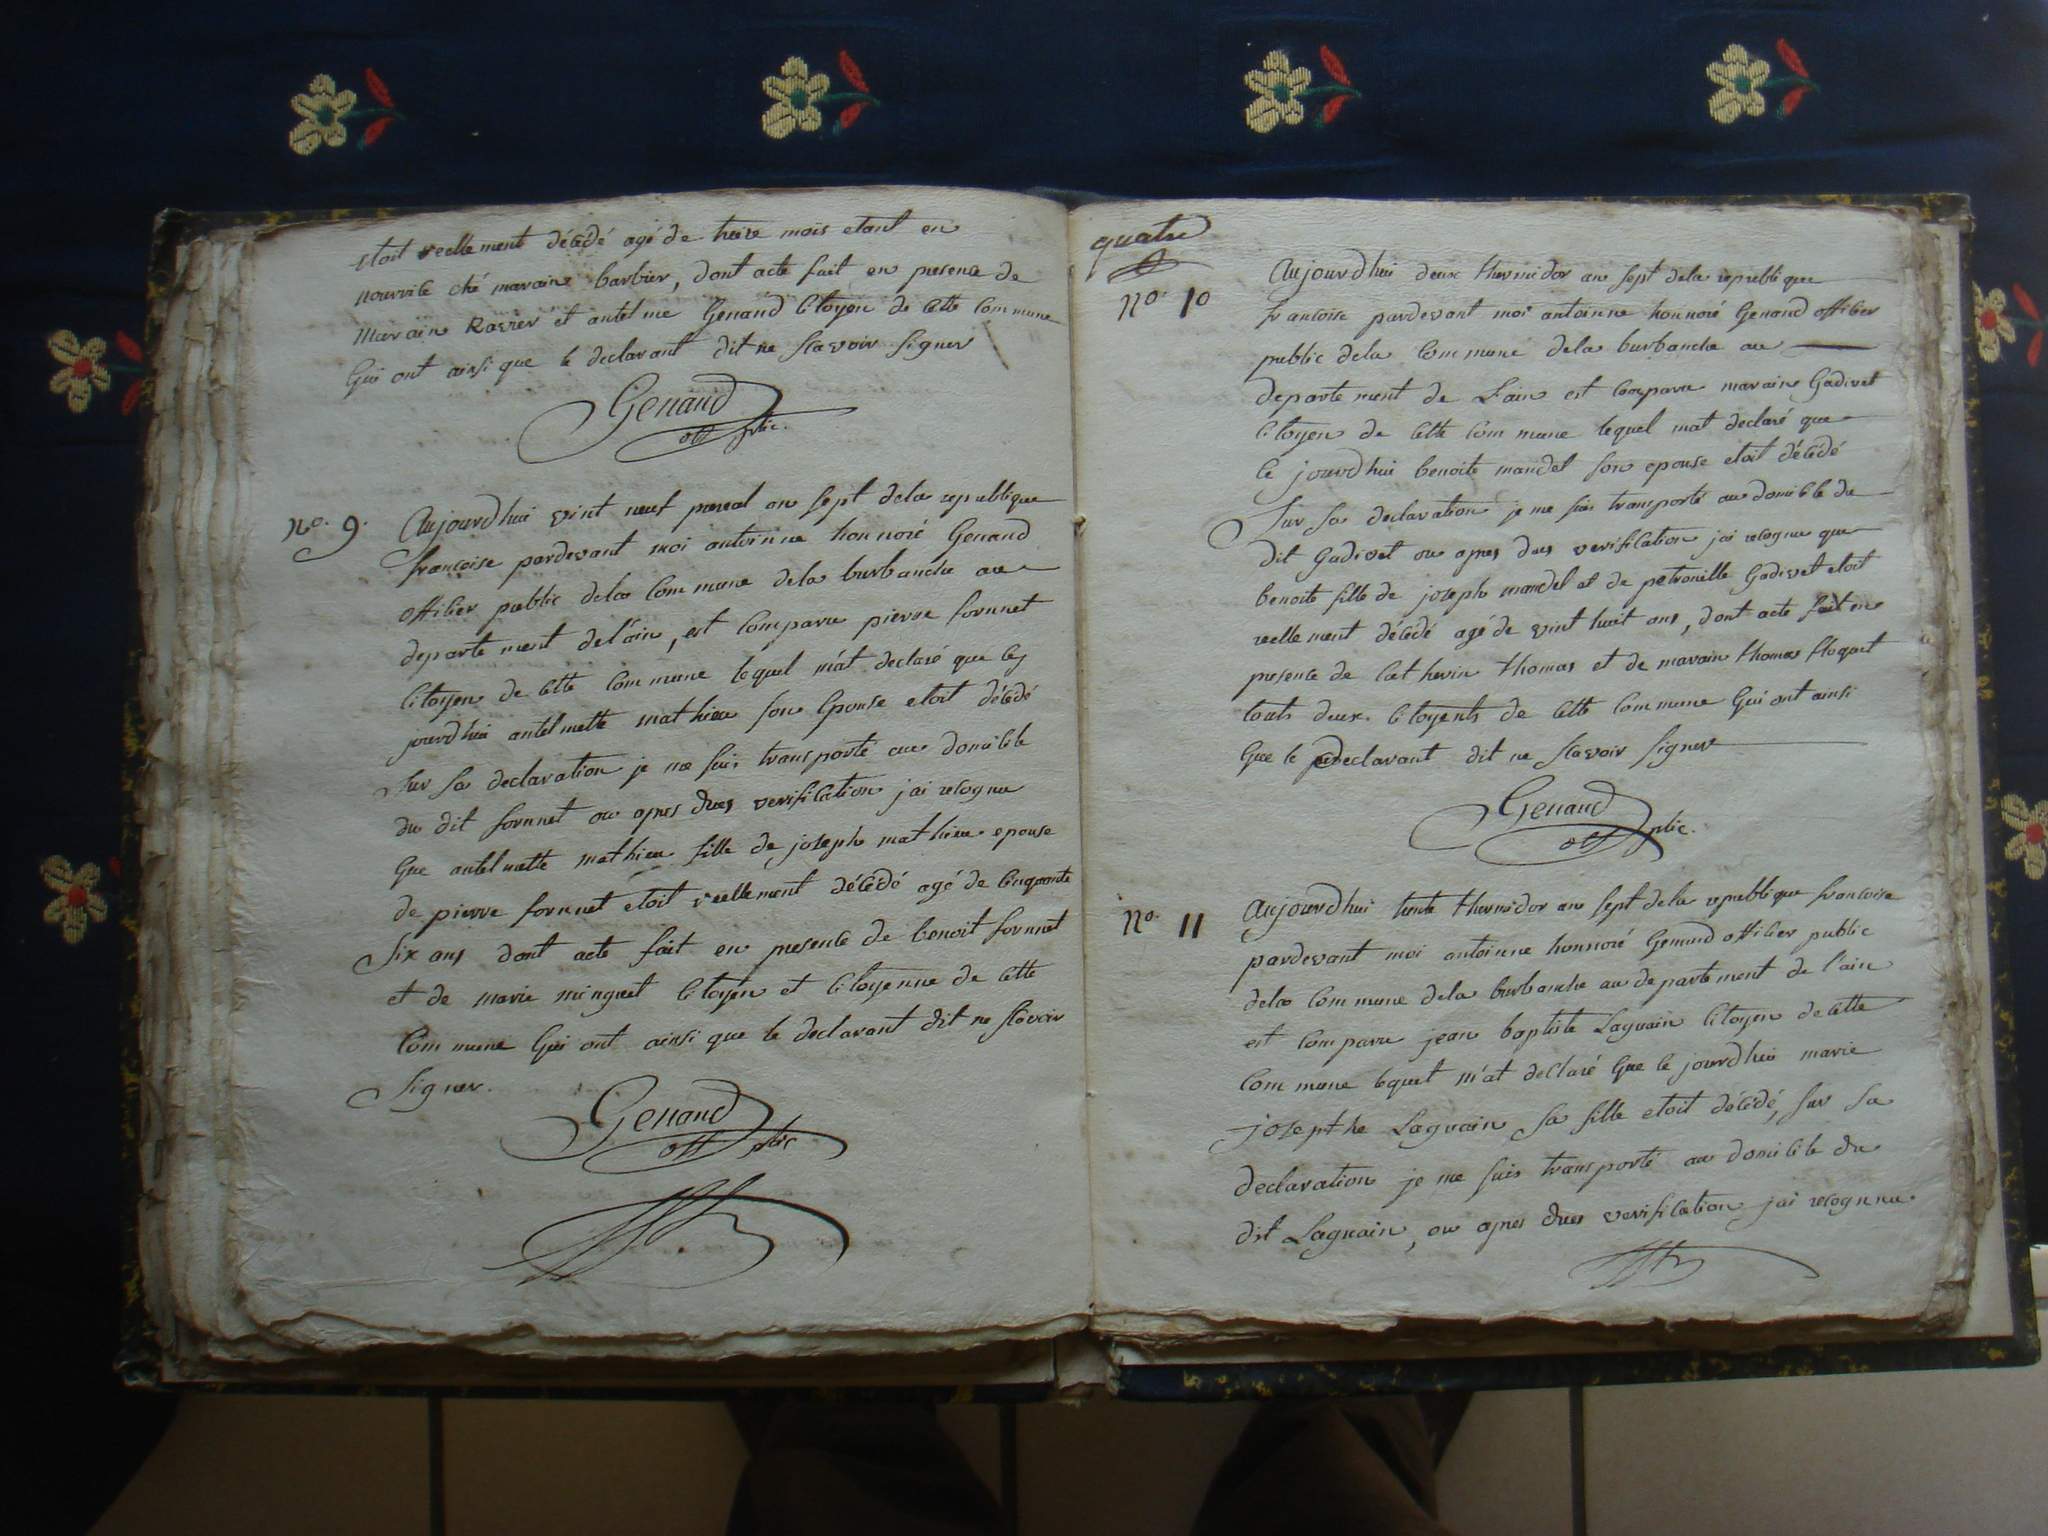 etoit reellement décédé agé de treize mois etant en
nourrice ché marain barbier, dont acte fait en presence de
marain Ravier et antelme Genand Citoyen de Cette Commune
Qui ont ainsi que le declarant dit ne scavoir signer
Genand
off plic.
No. 9.
Aujourdhui vint neuf prereal an sept dela republique
francoise pardevant moi antoinne honnoré Genand
officier public dela Commune dela burbanche au
departement de l'ain, est Comparu pierre fornnet
Citoyen de Cette Commune lequel m'at declaré que Ce
jourd'hui antelmette mathieu son Epouse etoit décédé
Sur sa declaration je me suis transporté au domicile
du dit fornnet ou apres dues verification jai recognu
Que antelmette mathieu fille de joseph mathieu epouse
de pierre fornnet etoit reellement décédé agé de Cinquante
Six ans dont acte fait en presence de benoit fornnet
et de marie minguet Citoyen et Citoyenne de Cette
Commune Qui ont ainsi que le declarant dit ne scavoir
Signer.
Genand
off plic
quatre
No. 10
Aujourdhui deux thermidor an sept dela republique
francoise pardevant moi antoinne honnoré Genand officier
public dela Commune dela burbanche au
departement de Lain est Comparu marain Gadivet
Citoyen de Cette Commune lequel mat declaré que
Ce jourdhui benoite mandel son epouse etoit décédé
Sur sa declaration je me suis transporté au domicile du
dit Gadivet ou apres dues verification jai recognu que
benoite fille de joseph mandel et de petronille Gadivet etoit
reellement décédé agé de vint huit ans, dont acte fait en
presence de Catherin thomas et de marain thomas floquet
touts deux Citoyents de Cette Commune Qui ont ainsi
Que le declarant dit ne scavoir signer
Genand
off plic.
No. 11
Aujourdhui trente thermidor an sept dela republique francoise
pardevant moi antoinne honnoré Genand officier public
dela Commune dela burbanche au departement de l'ain
est Comparu jean baptiste Laguain Citoyen de Cette
Commune lequel m'at declaré Que le jourdhui marie
josepthe Laguain Sa fille etoit décédé, sur sa
declaration je me suis transporté au domicile du
dit Laguain, ou apres dues verification jai recognnu